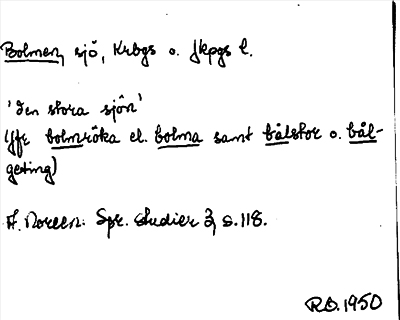 Bolmen, sjö, Krbgs o. Jkpgs l.
'den stora sjön'
(Jfr bolmröka el. bolma samt bålstor o. bål-
geting)
A. Noreen: Spr. studier 3, s. 118.
R.O. 1950